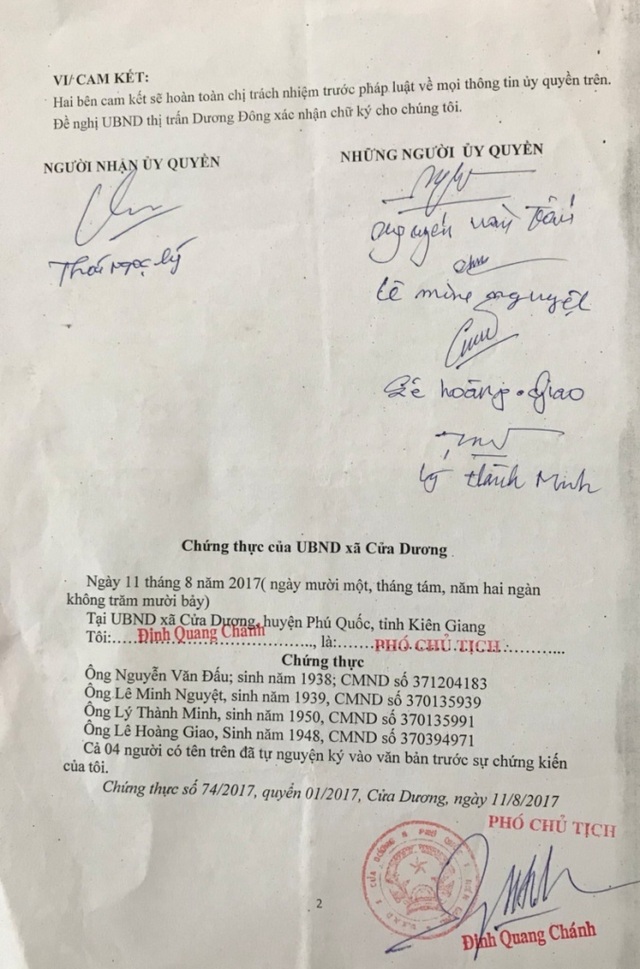 VI/ CAM KẾT:
Hai bên cam kết sẽ hoàn toàn chị trách nhiệm trước pháp luật về mọi thông tin ủy quyền trên.
Đề nghị UBND thị trấn Dương Đông xác nhận chữ ký cho chúng tôi.
NGƯỜI NHẬN ỦY QUYỀN
NHỮNG NGƯỜI ỦY QUYỀN
Thái Ngọc Lý
Nguyễn Văn Đấu
Lê Minh Nguyệt
Lê Hoàng Giao
Lý Thành Minh
Chứng thực của UBND xã Cửa Dương
Ngày 11 tháng 8 năm 2017( ngày mười một, tháng tám, năm hai ngàn
không trăm mười bảy)
Tại UBND xã Cửa Dương, huyện Phú Quốc, tỉnh Kiên Giang
Tôi:.....Đinh Quang Chánh....., là:.....PHÓ CHỦ TỊCH..........
Chứng thực
Ông Nguyễn Văn Đấu; sinh năm 1938; CMND số 371204183
Ông Lê Minh Nguyệt, sinh năm 1939, CMND số 370135939
Ông Lý Thành Minh, sinh năm 1950, CMND số 370135991
Ông Lê Hoàng Giao, Sinh năm 1948, CMND số 370394971
Cả 04 người có tên trên đã tự nguyện ký vào văn bản trước sự chứng kiến
của tôi.
Chứng thực số 74/2017, quyển 01/2017, Cửa Dương, ngày 11/8/2017
PHÓ CHỦ TỊCH
Đinh Quang Chánh
2